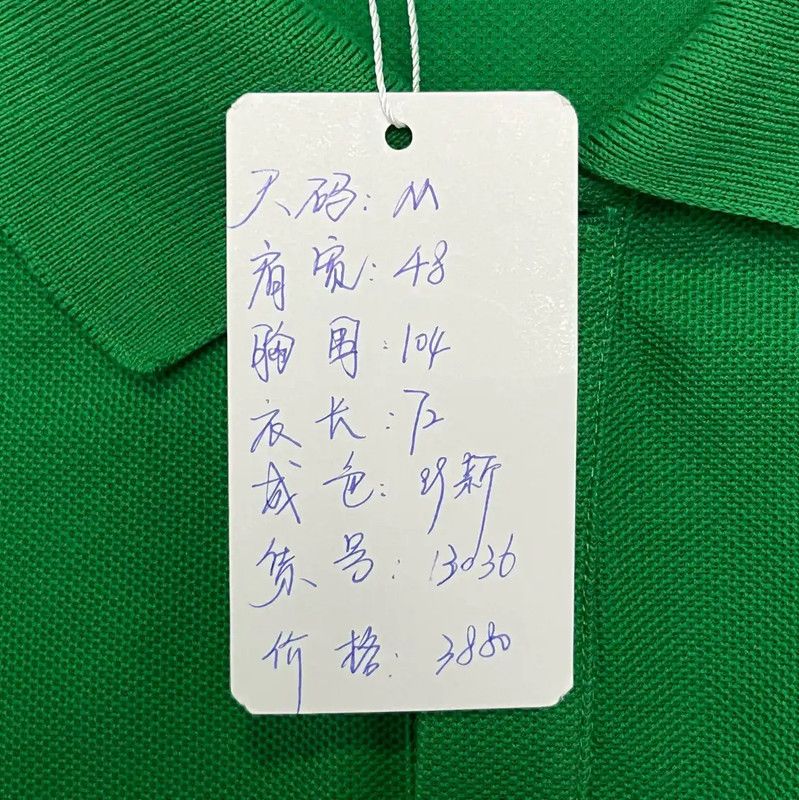 尺码: M
肩宽: 48
胸围: 104
衣长: 72
成色: 99新
货号: 13036
价格: 3880